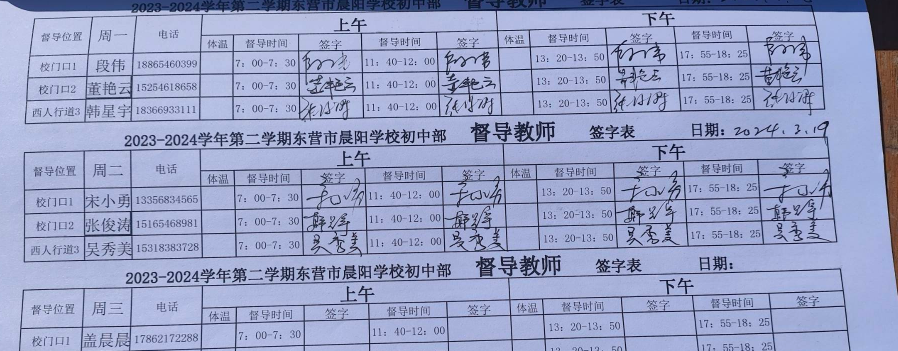 2023-2024学年第二学期东营市晨阳学校初中部 督导教师 签字表
督导位置 周一 电话 上午 下午
体温 督导时间 签字 督导时间 签字 体温 督导时间 签字 督导时间 签字
校门口1 段伟 18865460399 7：00-7：30 11：40-12：00 13：20-13：50 17：55-18：25
校门口2 董艳云 15254618658 7：00-7：30 董艳云 11：40-12：00 董艳云 13：20-13：50 董艳云 17：55-18：25 董艳云
西人行道3 韩星宇 18366933111 7：00-7：30 11：40-12：00 13：20-13：50 17：55-18：25
2023-2024学年第二学期东营市晨阳学校初中部 督导教师 签字表 日期：2024.3.19
督导位置 周二 电话 上午 下午
体温 督导时间 签字 督导时间 签字 体温 督导时间 签字 督导时间 签字
校门口1 宋小勇 13356834565 7：00-7：30 11：40-12：00 13：20-13：50 17：55-18：25
校门口2 张俊涛 15165468981 7：00-7：30 11：40-12：00 13：20-13：50 17：55-18：25
西人行道3 吴秀美 15318383728 7：00-7：30 吴秀美 11：40-12：00 吴秀美 13：20-13：50 吴秀美 17：55-18：25 吴秀美
2023-2024学年第二学期东营市晨阳学校初中部 督导教师 签字表 日期：
督导位置 周三 电话 上午 下午
体温 督导时间 签字 督导时间 签字 体温 督导时间 签字 督导时间 签字
校门口1 盖晨晨 17862172288 7：00-7：30 11：40-12：00 13：20-13：50 17：55-18：25